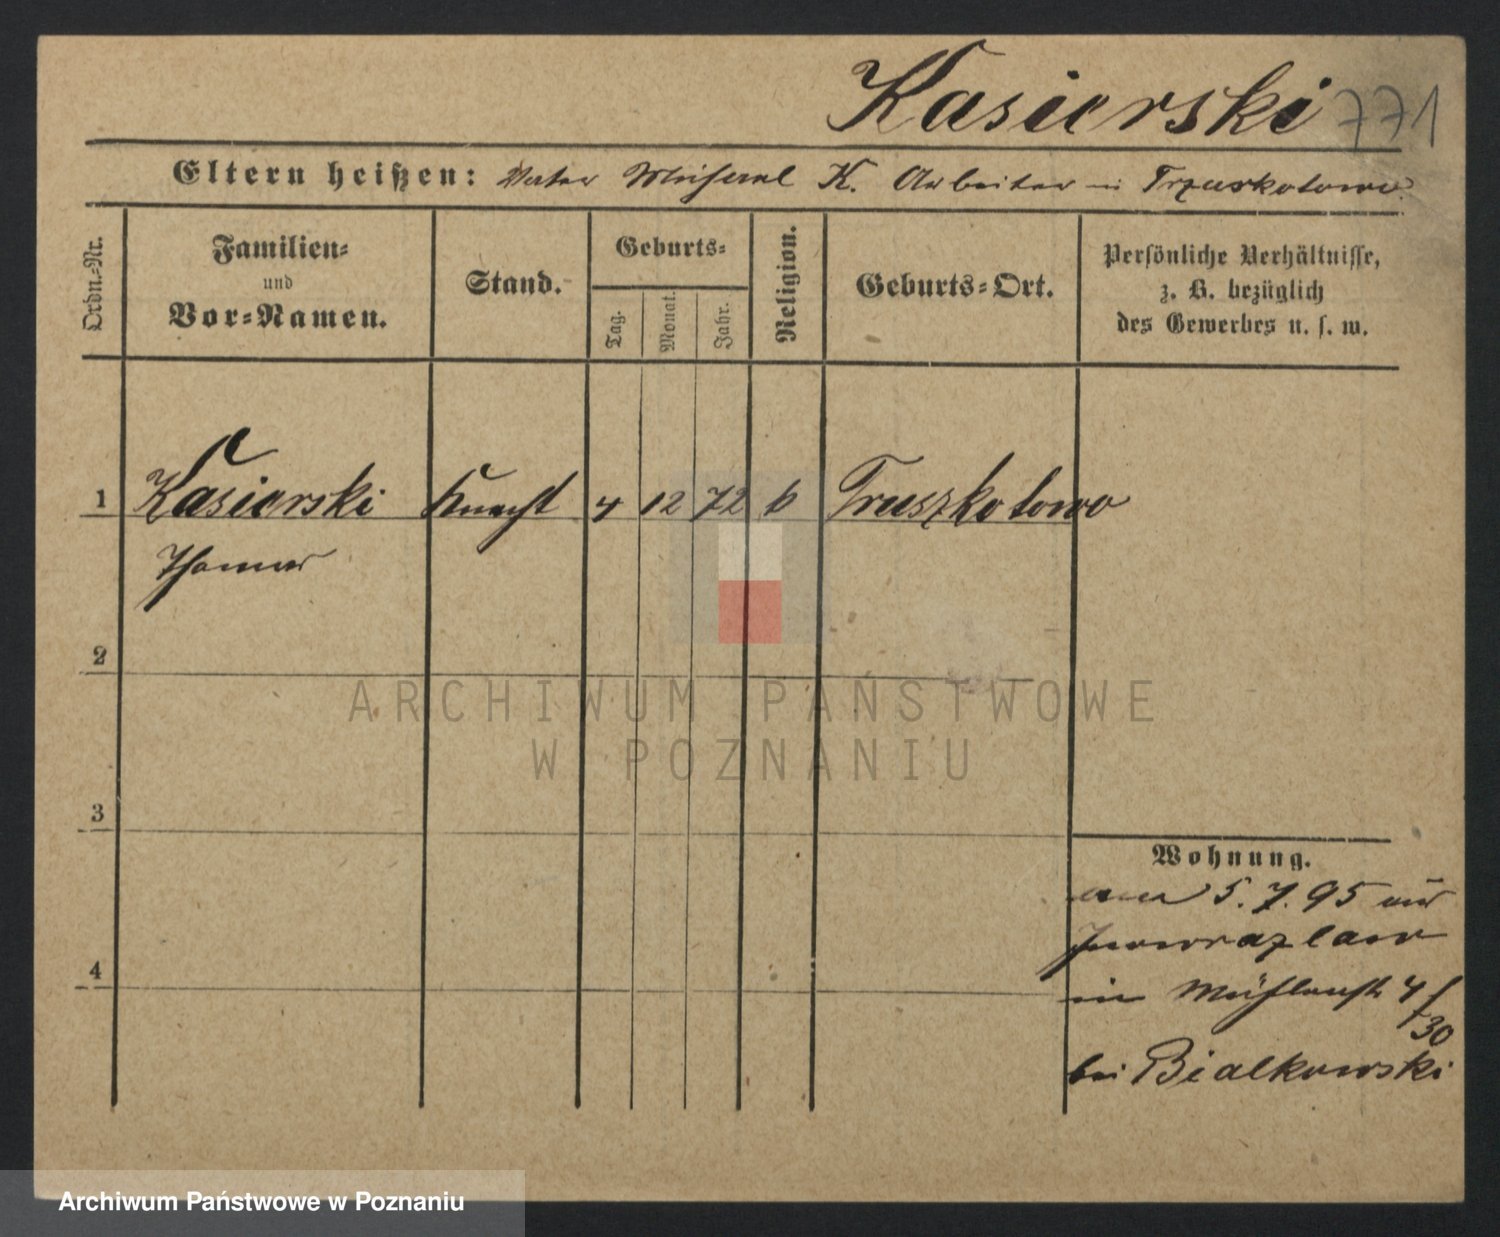 Kasierski 771
Eltern heißen: Vater Michael K. Arbeiter in Trzuskotowo.
Ordn.-Nr.
Familien-
und
Vor-Namen.
Stand.
Geburts-
Tag.
Monat.
Jahr.
Religion.
Geburts-Ort.
Persönliche Verhältnisse,
z. B. bezüglich
des Gewerbes u. s. w.
1 Kasierski Knecht 4 12 72 k Truszkotowo
Thomas
2
3
4
Wohnung.
5.7.95 aus
Inowrazlaw
in Mühlenstr 4/
30
bei Bialkowski
ARCHIWUM PAŃSTWOWE
W POZNANIU
Archiwum Państwowe w Poznaniu